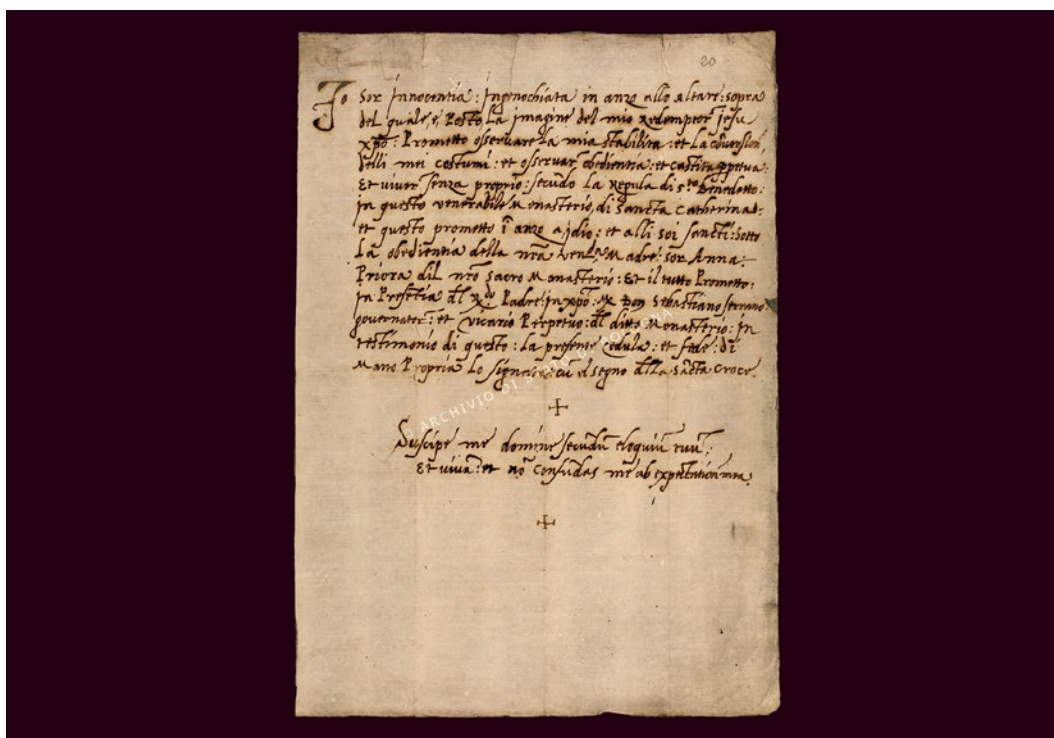 20
Io Sor Innocentia: Ingenochiata in anzo allo altare: sopra
del quale, e, Posto, La imagine del mio Redemptor Jesu
xp̄o: Prometto osservare La mia stabilita: et La cōversion,
delli mei costumi: et osservar obedientia: et castita ꝑpetua:
Et viver senza proprio: secūdo La Regula di s.to Benedetto:
in questo venerabile Monasterio, di Sancta Catherina:
et questo prometto ī anzo a Jdio: et alli soi sancti: Sotto
La obedientia della nr̄a Ven.da Madre: sor Anna:
Priora dil nr̄o sacro Monasterio: Et il tutto Prometto:
in Presētia dl̄ R.do Padre in xp̄o: Don Sebastiano serrano
governator: et Vicario Perpetuo: dl̄ ditto Monasterio: in
testimonio di questo: La presente cedula: et fede: di
Mano Propria Lo signata cū el segno dl̄la sācta croce.
ARCHIVIO DI STATO DI BOLOGNA
Suscipe me domine secūdū eloquiū tuū:
Et vivā: et nō confūdas me ab expectatione mea.